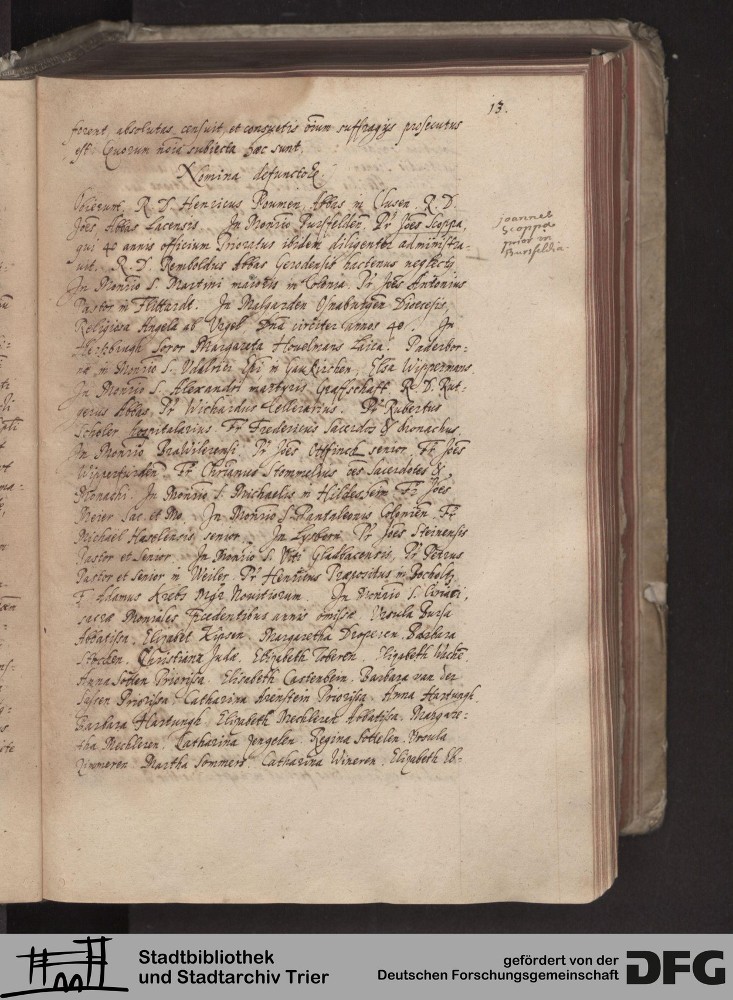 13.
forent absolutas censuit, et consuetis oium suffragijs prosecutus
est. Quorum noia subiecta haec sunt.
Nomina defunctor.
Obierunt. R. D. Henricus Boumen Abbas in Clusen. R. D.
Joes Abbas Lacensis. In Monrio Bursfelden. Pr Joes Scoppa,
qui 40 annis officium Prioratus ibidem diligenter administra-
uit. R. D. Remboldus Abbas Gerodensis hactenus neglectus
In Monrio S. Martini maioris in Colonia Pr Joes Antonius
Pastor in Flittardt. In Malgarden Osnabrugen Dioecesis,
Religiosa Angela ab Vigel Dna circiter annos 40. In
Hertzbrugh Soror Margareta Houelmans Laica. Paderbor-
nae in Monrio S. Vdalrici Epi in Gaukirchen, Elsa Wippermans.
In Monrio S. Alexandri martyris Graffschaff R. D. Rut-
gerus Abbas, Pr Wichardus Cellerarius. Pr Rubertus
Scheler hospitalarius. Fr Fredericus Sacerdos & Monachus.
In Monrio Brawilerensi. Pr Joes Ottfinck senior. Fr Joes
Wipperfurden. Fr Christianus Stommelius oes Sacerdotes &
Monachi. In Monrio S. Michaelis in Hildesheim Fr Joes
Meier Sac. et Mo. In Monrio S. Pantaleonis Colonien. Fr
Michael Haselensis senior. In Lysborn Pr Joes Steinensis
Pastor et Senior. In Monrio S. Viti Gladbacensis, Pr Petrus
Pastor et Senior in Weiler. Pr Henricus Praepositus in Bocholtz
F. Adamus Krebs Mgr Nouitiorum. In Monrio S.
sacrae Moniales praecedentibus annis omissae. Vrsula Bursa
Abbatissa. Elizabet Kipsen. Margaretha Droperen. Barbara
Stocken. Christiana Judae. Elizabeth Toberen. Elizabeth Wache.
Anna Sotten Priorissa. Elisabeth Castenbern. Barbara van der
Sassen Priorissa. Catharina Arenstein Priorissa. Anna Hartungh.
Barbara Hartungh. Elizabeth Mechleren Abbatissa. Margare-
tha Mechleren. Catharina Jengelen. Regina Sottelen. Vrsula
Zimmeren. Martha Sommers. Catharina Wineren. Elizabeth Eb-
joannes
Scoppa
prior in
Bursfeldia.
Stadtbibliothek
und Stadtarchiv Trier
gefördert von der
Deutschen Forschungsgemeinschaft
DFG